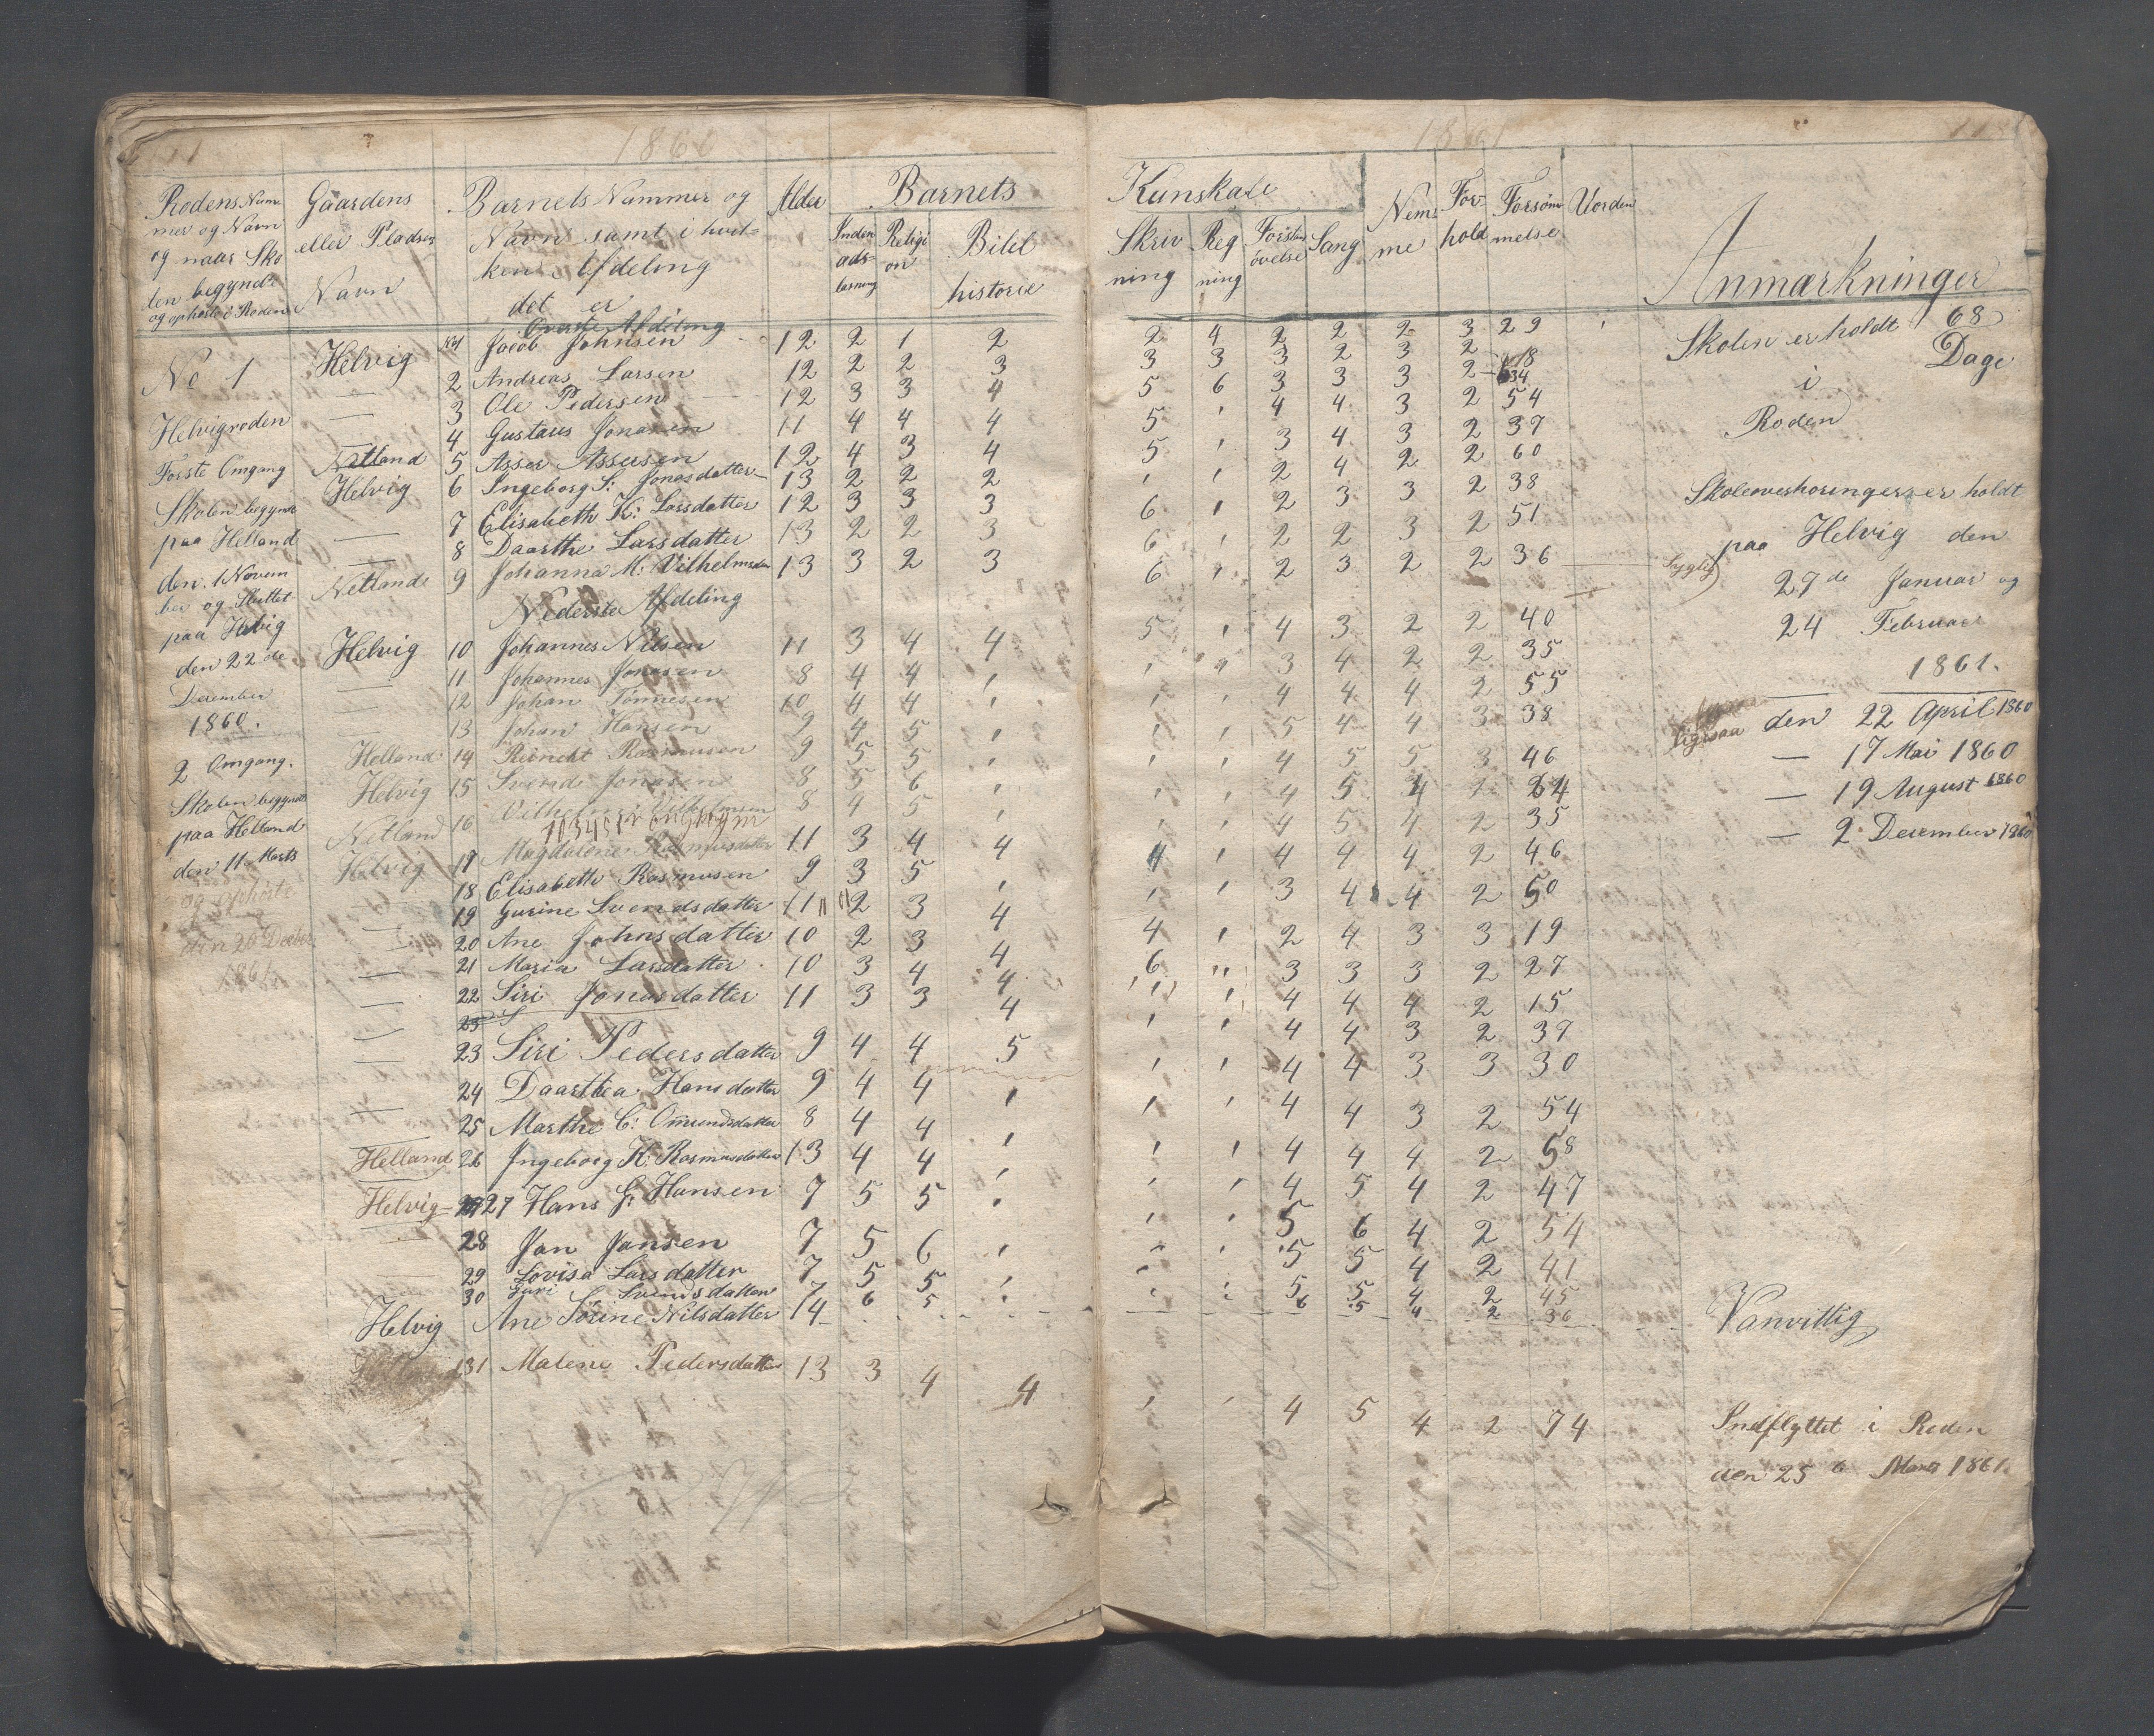 1860
Rodens Num
mer og Navn
og naar Sko
len begynd:
og ophørte i Roden
Gaardens
eller Pladsens
Navn
Barnets Nummer og
Navn samt i hvil-
ken Afdeling
det er
Alder
Barnets
Inden
ads-
læsning
Religi
on
Bibel
historie
Øverste Afdeling
No 1 Helvig Jacob Johnsen 12 2 1 2
— 2 Andreas Larsen 12 2 2 3
— 3 Ole Pedersen 12 3 3 4
Helvigroden 4 Gustaus Jonasen 11 4 4 4
Første Omgang Netland 5 Asser Assersen 12 4 3 4
Skolen begynde Helvig 6 Ingeborg S: Jonasdatter 13 2 2 2
paa Helland — 7 Elisabeth K: Larsdatter 12 3 3 3
den 1 Novem — 8 Daarthe Larsdatter 13 2 2 3
ber og Sluttet Netland 9 Johanna M: Vilhelmsdat 13 3 2 3
Nederste Afdeling
paa Helvig Helvig 10 Johannes Nilsen 11 3 4 4
den 22de — 11 Johannes Jonasen 8 4 4 ,
December — 12 Johan Tønnesen 10 4 4 ,
1860. — 13 Johan Hansen 9 4 5 ,
2 Omgang. Helland 14 Reinert Rasmusen 9 5 5 ,
Skolen begynde Helvig 15 Jonasen 8 5 6 ,
paa Helland Netland 16 Vilhelm Vilhelmsen 8 4 5 ,
den 11 Marts Helvig 17 Magdalene Rasmusdatter 11 3 4 4
og ophørte — 18 Elisabeth Rasmusen 9 3 5 ,
den 20 Decbr — 19 Gurine Svendsdatter 11 2 3 4
1861 — 20 Ane Johnsdatter 10 2 3 4
— 21 Maria Larsdatter 10 3 4 4
— 22 Siri Jonasdatter 11 3 3 4
23
— 23 Siri Pedersdatter 9 4 4 5
— 24 Daarthea Hansdatter 9 4 4 ,
— 25 Marthe C: Omundsdatter 8 4 4 ,
Helland 26 Ingeborg K: Rasmusdatter 13 4 4 ,
Helvig 27 Hans G: Hansen 7 5 5 ,
— 28 Jan Jansen 7 5 6 ,
— 29 Lovisa Larsdatter 7 5 5 ,
30 Guri S. Svendsdatter 7 6 5
Helvig Ane Sørine Nilsdatter 14
131 Malene Pedersdatter 13 3 4 4
1861
Kunskabe
Skriv
ning
Reg
ning
Forstands
øvelse
Sang
Nem
me
For-
hold
Forsøm
melse
Vorden
Anmærkninger
2 4 2 2 2 3 29
3 3 3 2 3 2 18
5 6 3 3 3 2 34
5 , 4 4 3 2 54
5 , 3 4 3 2 37
, , 2 4 2 2 60
6 , 2 3 3 2 38
6 , 2 2 3 2 51
6 , 2 3 2 2 36 Syglig
5 , 4 3 2 2 40
, , 3 4 2 2 35
, , 4 4 4 2 55
, , 5 4 4 3 38
, , 4 5 5 3 46
, , 4 5 4 2 24
, , 4 5 4 2 35
4 , 4 4 4 2 46
, , 3 4 4 2 50
4 , 2 4 3 3 19
6 ,, 3 3 3 2 27
, , 4 4 4 2 15
, , 4 4 3 2 37
, , 4 4 3 3 30
, , 4 4 3 2 54
, , 4 4 4 2 58
, , 4 5 4 2 47
, , 5 6 4 2 54
, , 5 5 4 2 41
, , 5 5 4 2 45
6 5 4 2 36
, , 4 5 4 2 74
Skolen er holdt 68
Dage
i
Roden
Skoleoverhøringer er holdt
paa Helvig den
27de Januar og
24 Februar
1861.
ligesaa den 22 April 1860
— 17 Mai 1860
— 19 August 1860
— 2 Desember 1860
Vanvittig
Indflyttet i Roden
den 25 Marts 1861.